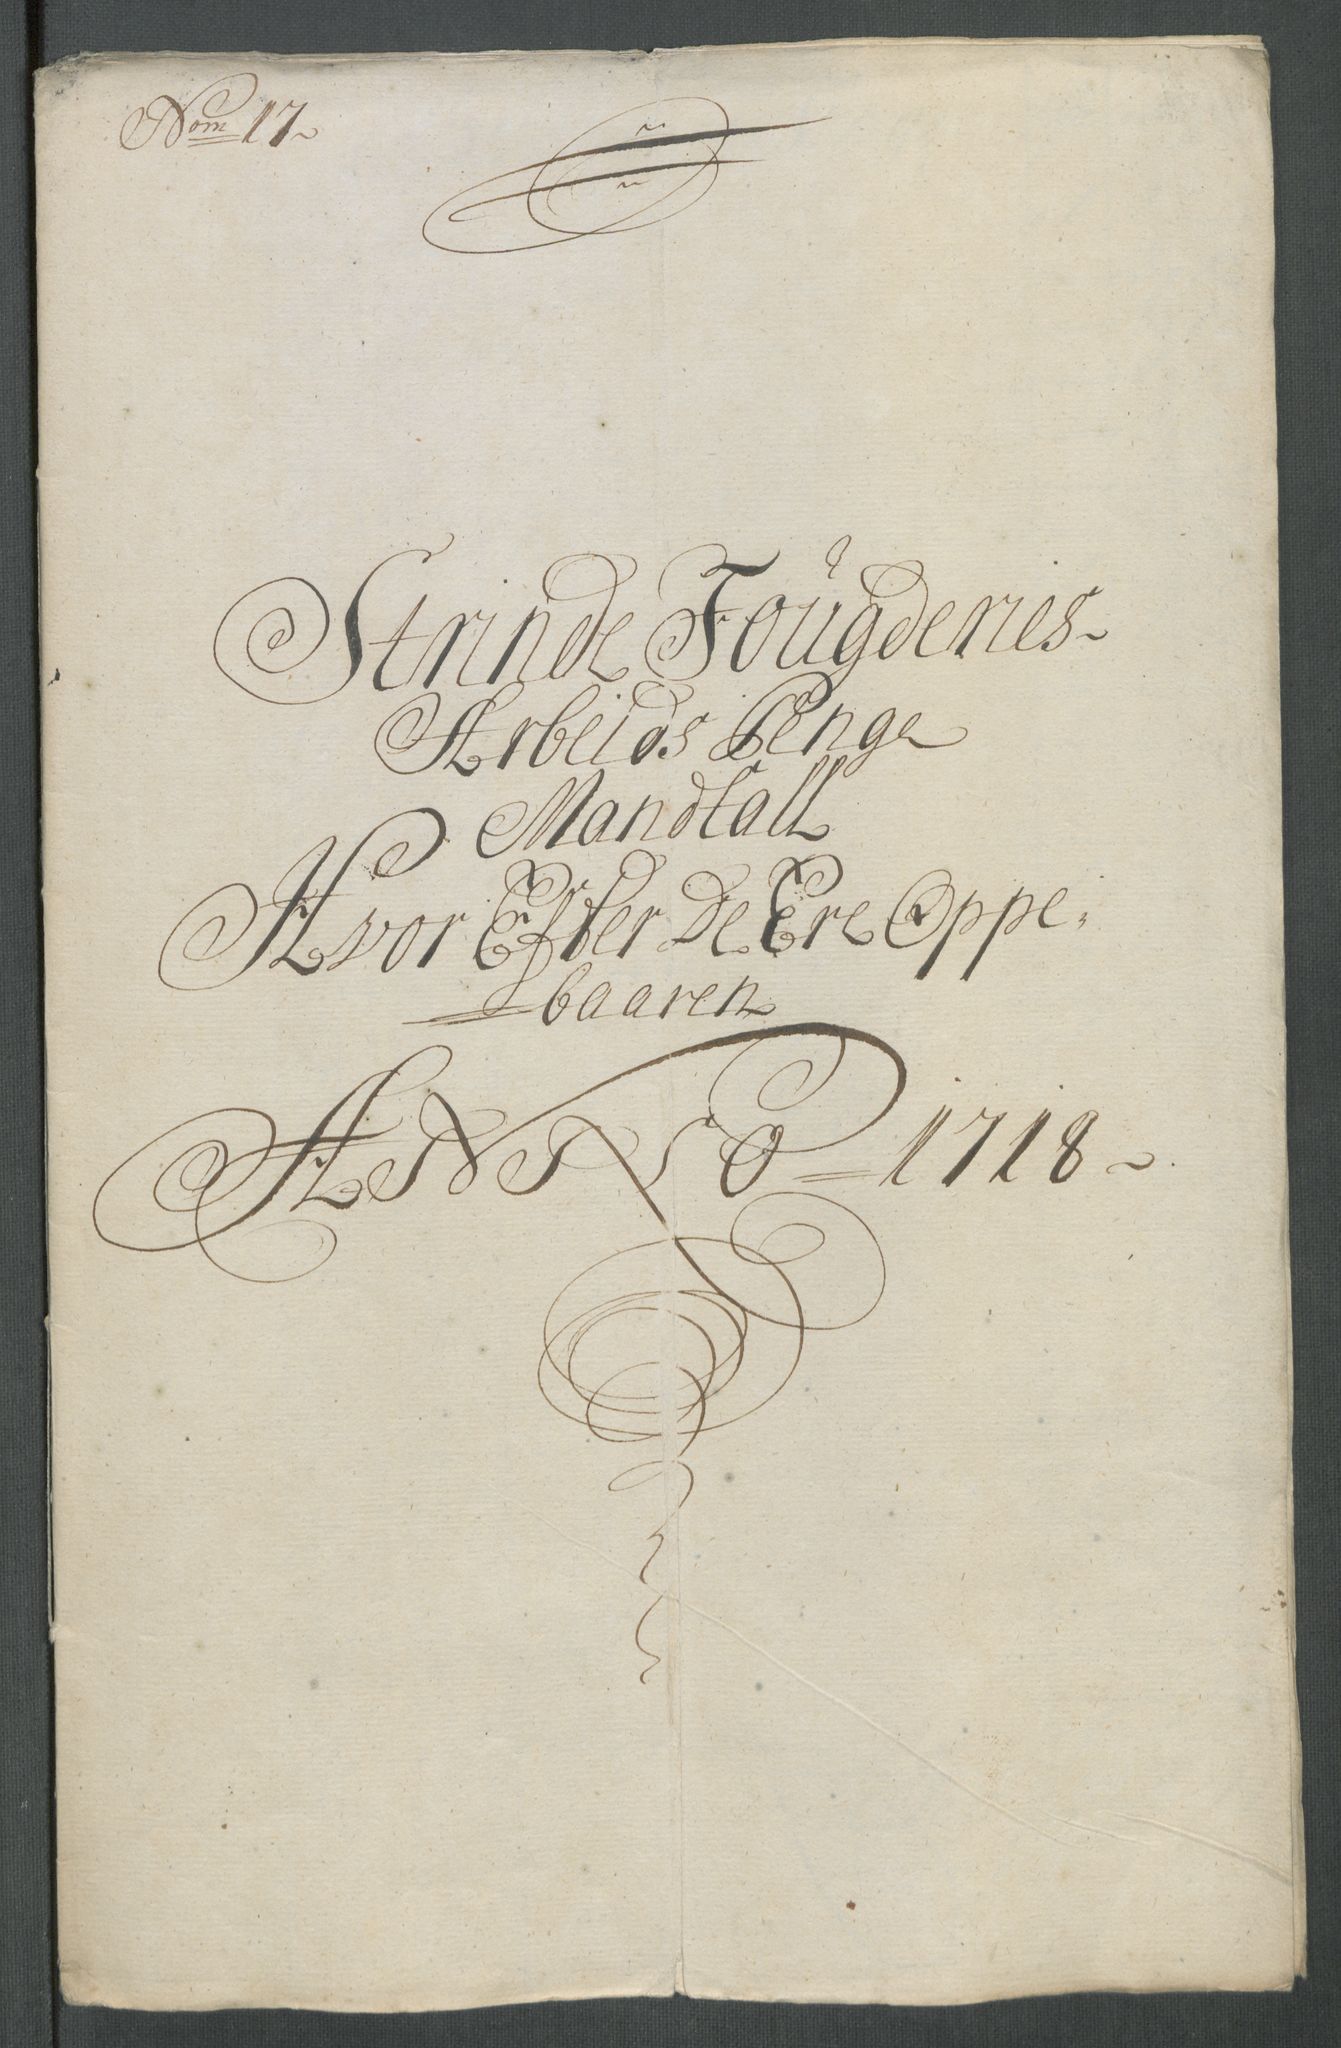 Nom 17
Strinde Fougderies
Arbeids Penge
Mandtall
Hvor Efter De Ere Oppe-
baaren
ANNO 1718